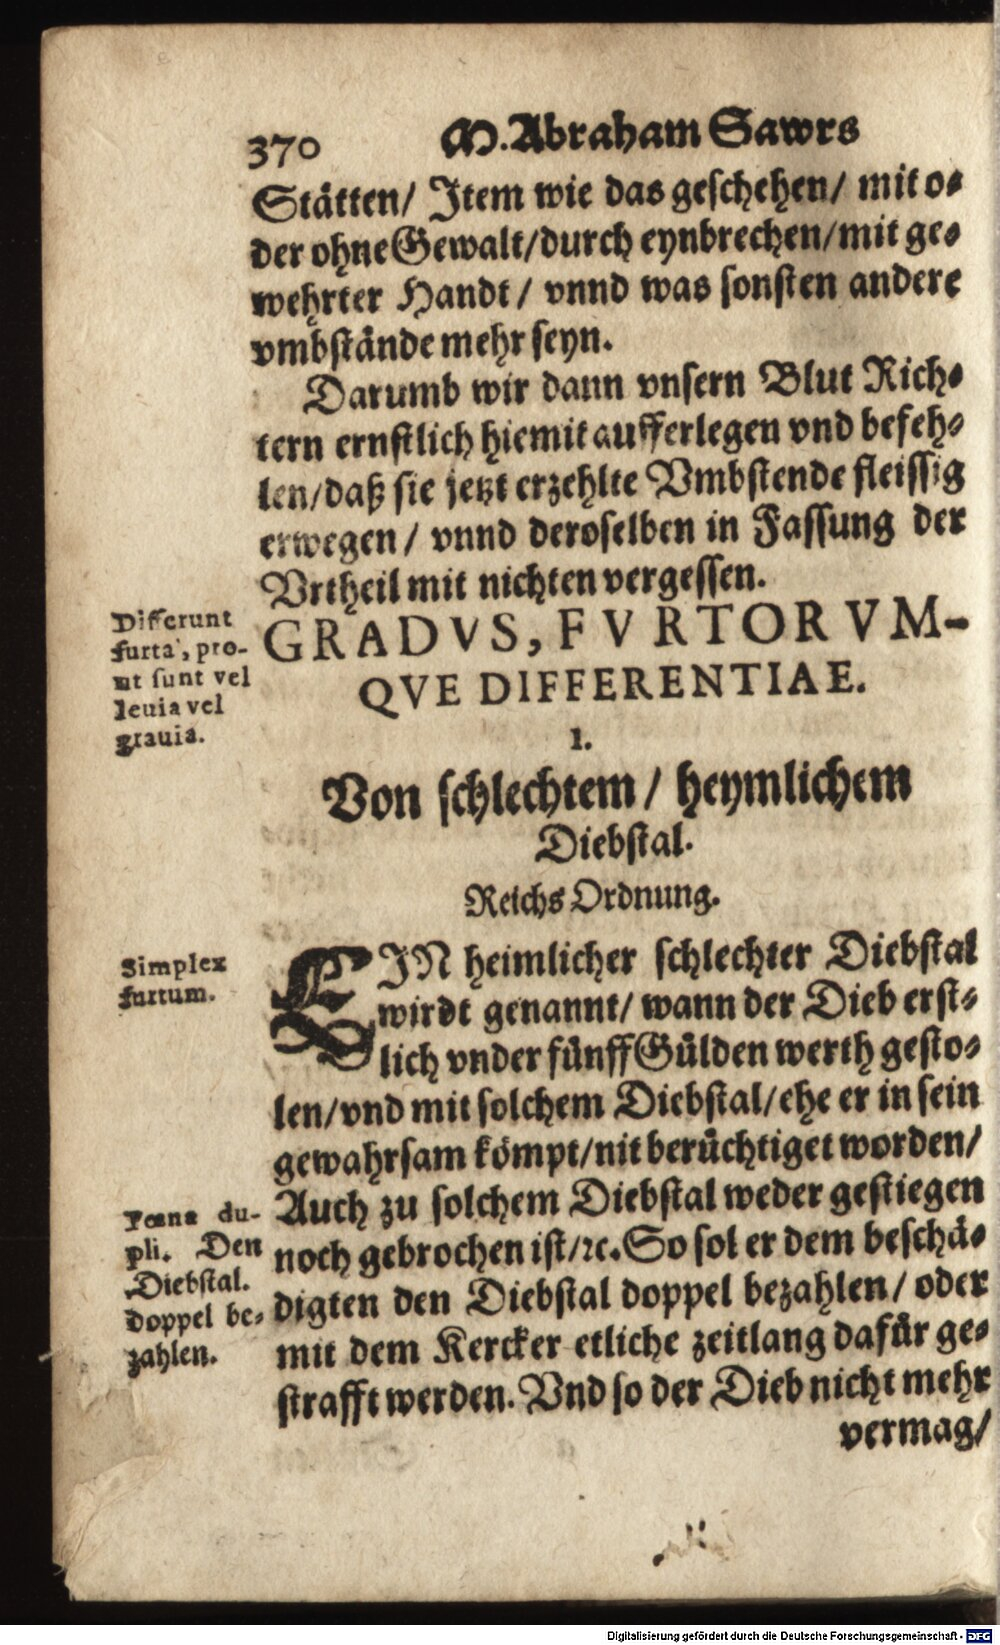 370 M. Abraham Sawrs
Stätten/ Item wie das geschehen/ mit o-
der ohne Gewalt/durch eynbrechen/mit ge-
wehrter Handt/ vnnd was sonsten andere
vmbstände mehr seyn.
Darumb wir dann vnsern Blut Rich-
tern ernstlich hiemit aufferlegen vnd befeh-
len/daß sie jetzt erzehlte Vmbstende fleissig
erwegen/ vnnd deroselben in Fassung der
Vrtheil mit nichten vergessen.
Differunt
furta, pro-
ut sunt vel
leuia vel
grauia.
GRADVS, FVRTORVM-
QVE DIFFERENTIAE.
1.
Von schlechtem/ heymlichem
Diebstal.
Reichs Ordnung.
Simplex
furtum.
EIN heimlicher schlechter Diebstal
wirdt genannt/ wann der Dieb erst-
lich vnder fünff Gülden werth gesto-
len/vnd mit solchem Diebstal/ehe er in sein
gewahrsam kömpt/nit berüchtiget worden/
Auch zu solchem Diebstal weder gestiegen
noch gebrochen ist/ꝛc. So sol er dem beschä-
digten den Diebstal doppel bezahlen/ oder
mit dem Kercker etliche zeitlang dafür ge-
strafft werden. Vnd so der Dieb nicht mehr
Poena du-
pli. Den
Diebstal.
doppel be-
zahlen.
vermag/
Digitalisierung gefördert durch die Deutsche Forschungsgemeinschaft - DFG